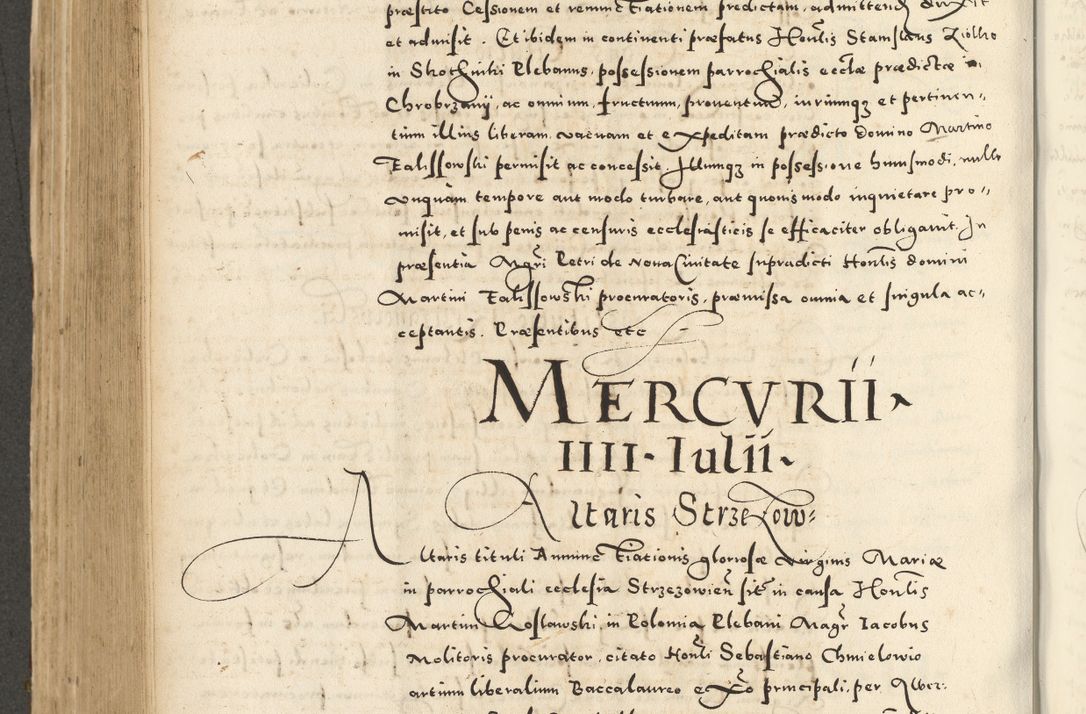 præstito Cessionem et renunctiationem predictam, admittend
et admisit. Et ibidem in continenti præfatus Honlis Stanislaus Ziolko
in Skothniki Plebanus, possessionem parrochialis ecclæ prædictæ in
Chrobrzanÿ, ac omnium, fructuum, proventuum, iuriumqz et pertinen-,
tium illius liberam, vacuam et expeditam prædicto domino Martino
Falissowski permisit ac concessit. Illumqz in possessione huiusmodi, nullo
unquam tempore aut modo turbare, aut quovis modo inquietare pro-,
misit, et sub penis ac censuris ecclesiasticis se efficaciter obligavit. In
præsentia Mgri Petri de Nova Civitate supradicti Honlis domini
Martini Falissowski procuratoris, præmissa omnia et singula ac-,
ceptantis. Præsentibus etc
MERCVRII
IIII. Iulii.
Altaris Strzezow:
Altaris tituli Annunctiationis gloriosæ virginis Mariæ
in parrochiali ecclesia Strzezowien sito in causa Honlis
Martini Goslawski, in Polomia Plebani Magr Iacobus
Molitoris procurator, citato Honli Sebastiano Chmielowio
artium liberalium Baccalaureo exo principali, per Alber: